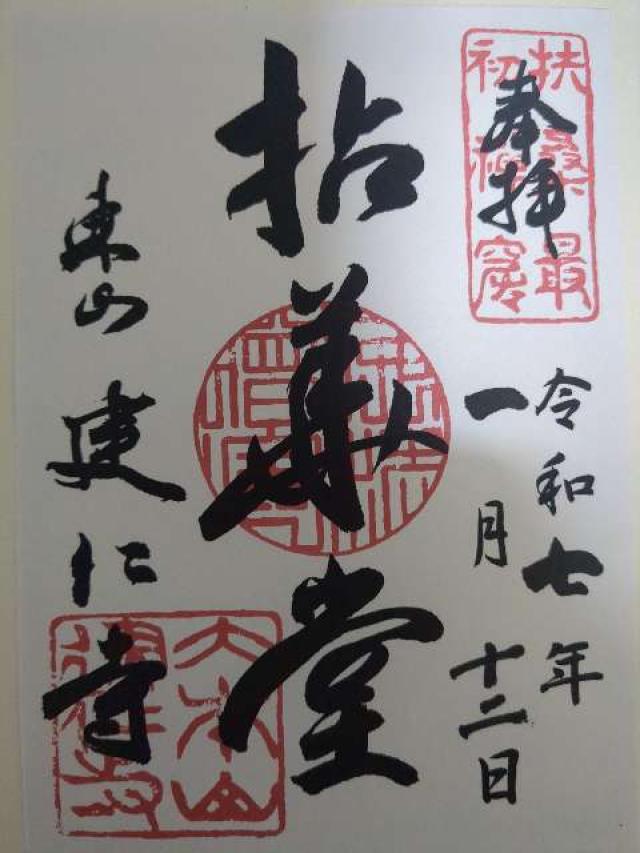 扶桑最
初禅窟
奉拝
令和七年
一月十二日
拈華堂
東山 建仁寺
大本山
建仁寺